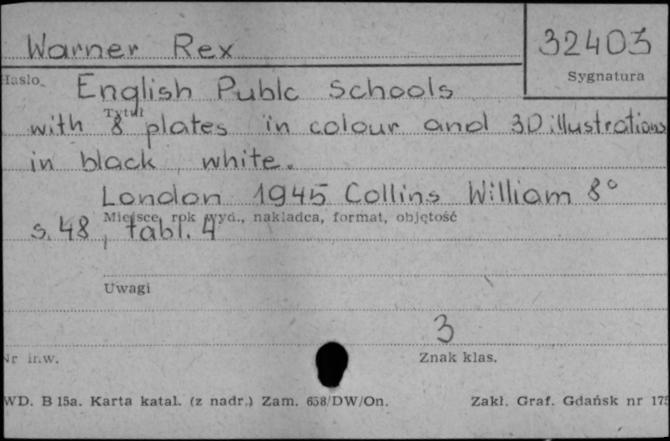 Warner Rex
32403
Hasło
Sygnatura
English Publc Schools
Tytuł
with 8 plates in colour and 30 illustrations
in black white.
London 1945 Collins William 8°
Miejsce, rok wyd., nakładca, format, objętość
s. 48, tabl. 4
Uwagi
3
Nr inw.
Znak klas.
WD. B 15a. Karta katal. (z nadr.) Zam. 658/DW/On.
Zakł. Graf. Gdańsk nr 175